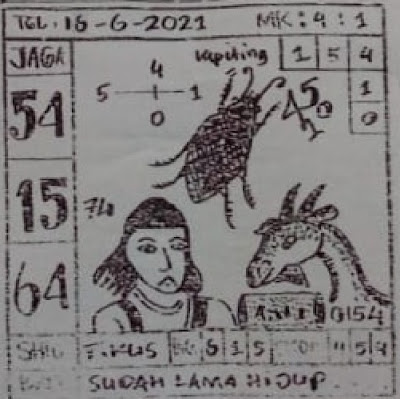 TGL: 16-6-2021 MK: 4 : 1
JAGA kepiting 1 5 4
4
5 1 1
0 0
54 4 5 0 1
15 74
64 0154
TIKUS 6 1 5 5 4
SUDAH LAMA HIDUP